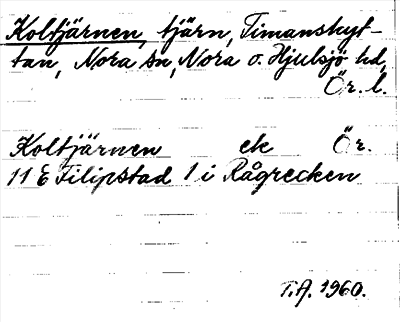 Koltjärnen, tjärn, Timanshyt-
tan, Nora sn, Nora o. Hjulsjö hd,
Ör. l.
Koltjärnen ek Ör.
11 E Filipstad 1 i Rågrecken
T.A. 1960.